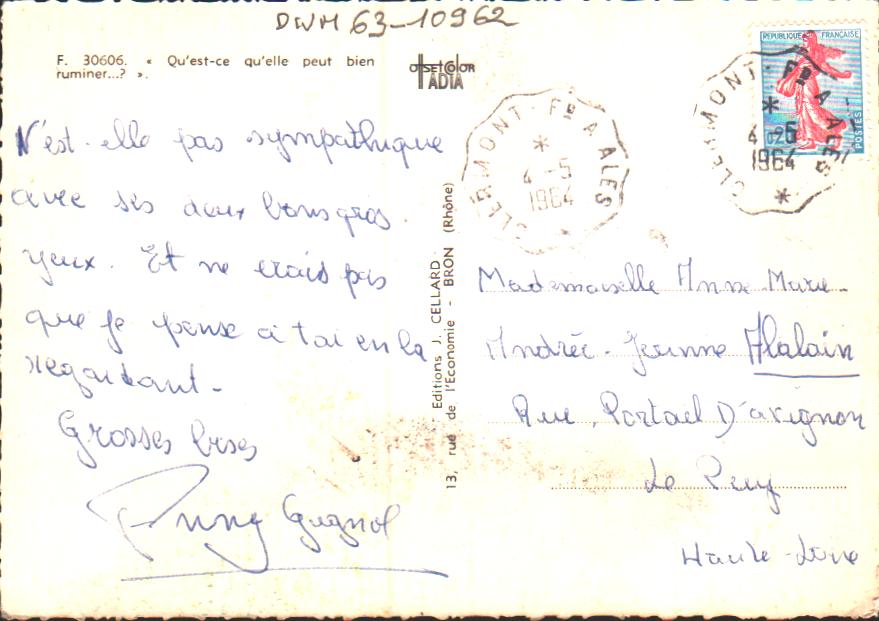 DWM 63-10962
F. 30606. « Qu'est-ce qu'elle peut bien
ruminer...? ».
offset Color
ADIA
REPUBLIQUE FRANÇAISE
POSTES
0,25
CLERMONT-Fd A ALES
4-5
1964
CLERMONT-Fd A ALES
4-5
1964
N'est-elle pas sympathique
avec ses deux bons gros
yeux. Et ne crois pas
que je pense à toi en la
regardant-
Grosses bises
Guignol
Editions J. CELLARD
13, rue de l'Economie - BRON (Rhône)
Mademoiselle Anne-Marie-
Andrée-Jeanne Alalain
Rue Portail D'avignon
Le Puy
Haute-Loire